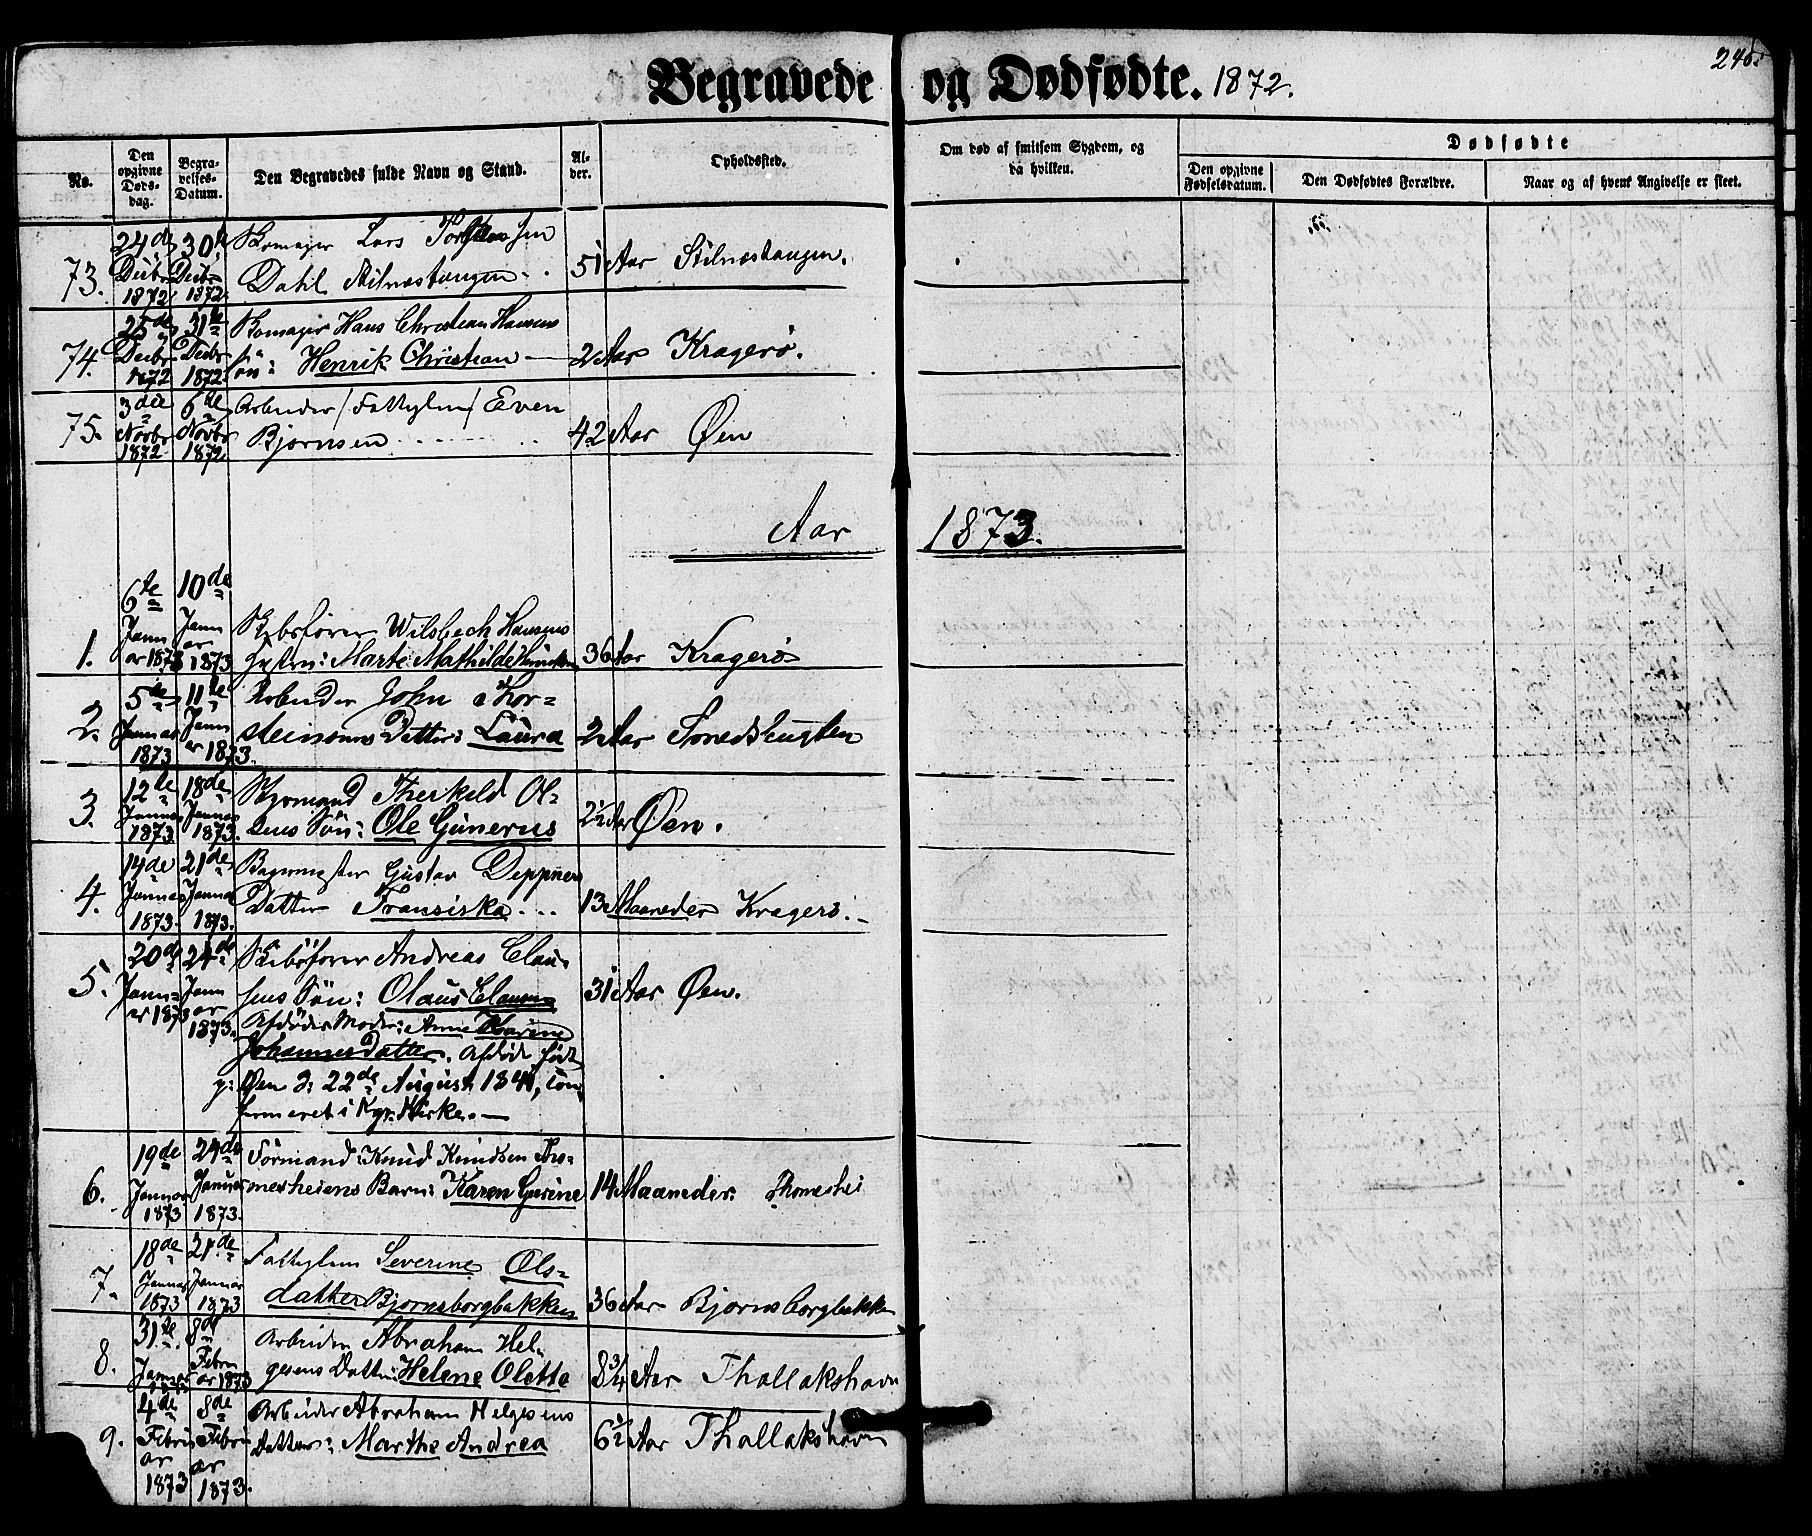 Begravede og Dødfødte. 1872.
No.
Den opgivne Døds-dag.
Begra-velses-Datum.
Den Begravedes fulde Navn og Stand.
Al-der.
Opholdssted.
Om død af smitsom Sygdom, og da hvilken.
Dødfødte
Den opgivne Fødselsdatum.
Den Dødfødtes Forældre.
Naar og af hvem Angivelse er skeet.
73. 24de Decbr 1872 30te Decbr 1872 Skomager Lars
Dahl Stilnæstangen 51 Aar Stilnæstangen.
74. 25de Decbr 1872 31te Decbr 1872 Skomager Hans Christian Hansens
søn: Henrik Christian 2 Aar Kragerö.
75. 3die Novbr 1872 6te Novbr 1872 Arbeider /Fattiglem/ Even
Bjørnsen 42 Aar Øen
Aar 1873.
1. 6te Januar 1873 10de Januar 1873 Skibsfører Wilsbech Hansens
Marte Mathilde 36 Aar Kragerö
2. 5te Januar 1873 11te Januar 1873. Arbeider John Thor=
steinsens Datter: Laura 2 Aar
3. 12te Januar 1873. 18de Januar 1873. Therkeld Ol=
sens Søn: Ole Gunerus 2½ Aar Øen.
4. 14de Januar 1873. 21de Januar 1873. Bagermester Gustav Deppners
Datter Fransiska 13 Maaneder Kragerö.
5. 20de Januar 1873 24de Januar 1873. Skibsfører Andreas Clau=
sens Søn: Olaus Clausen 31 Aar Øen.
Afdødes Moder: Anne Karine
Johannes Datter. Afdød født
p: Øen d: 22de August 1841, con
firmeret i Kgr. Kirke.
6. 19de Januar 1873 24de Januar 1873. Formand: Knud Knudsen Tho=
mesheiens Barn: Karen Gurine 14 Maaneder. Thomeshei
7. 18de Januar 1873 21de Januar 1873 Fattiglem Severine Ols=
datter Bjørnsborgbakken 36 Aar Bjørnsborgbakke
8. 31te Januar 8de Februar 1873 Arbeider Abraham Hel=
gesens Datter: Helene Olette 8¾ Aar Thallakshavn
9. 4de Februar 1873 8de Februar 1873. Arbeider Abraham Helgesens
Datter: Marthe Andrea 6½ Aar Thallakshavn